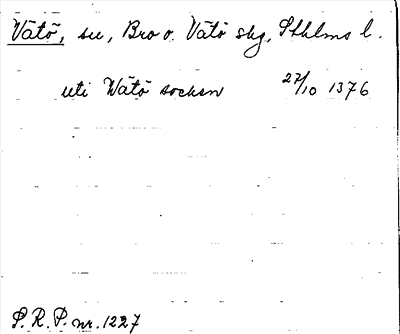 Vätö, su, Bro o. Vätö skg, Sthlms l.
uti Wätö socken 27/10 1376
S.R.P. nr. 1227